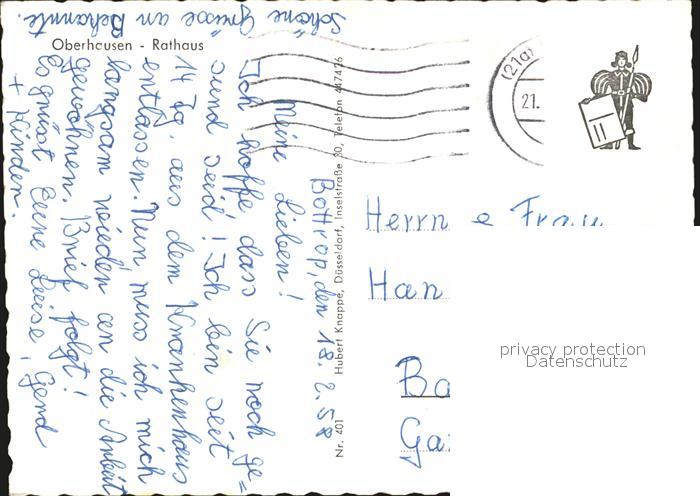 Oberhausen - Rathaus
Bottrop, den 18. 2. 58
Meine Lieben!
Ich hoffe dass Sie noch ge=
sund seid! Ich bin seit
14 Tg. aus dem Krankenhaus
entlassen. Nun muss ich mich
langsam wieder an die Arbeit
gewöhnen. Brief folgt!
Es grüsst Eure Luise, Gerd
+ Kinder.
Schöne Grüsse an Bekannte.
Nr. 401 Hubert Knappe, Düsseldorf, Inselstraße 30, Telefon 447426
(21a)
21.
Herrn e Frau
Han
Ba
Ga
privacy protection
Datenschutz